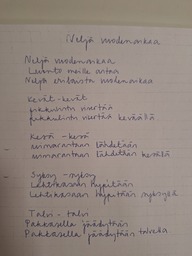 Neljä vuodenaikaa
Neljä vuodenaikaa
Luonto meille antaa
Neljä erilaista vuodenaikaa
Kevät - kevät
pikkulintu viertää
pikkulintu viertää keväällä
Kesä - kesä
uimarantaan lähdetään
uimarantaan lähdetään kesällä
Syksy - syksy
Lehtikasaan hypitään
Lehtikasaan hypitään syksyllä
Talvi - talvi
Pakkasella jäädytään
Pakkasella jäädytään talvella